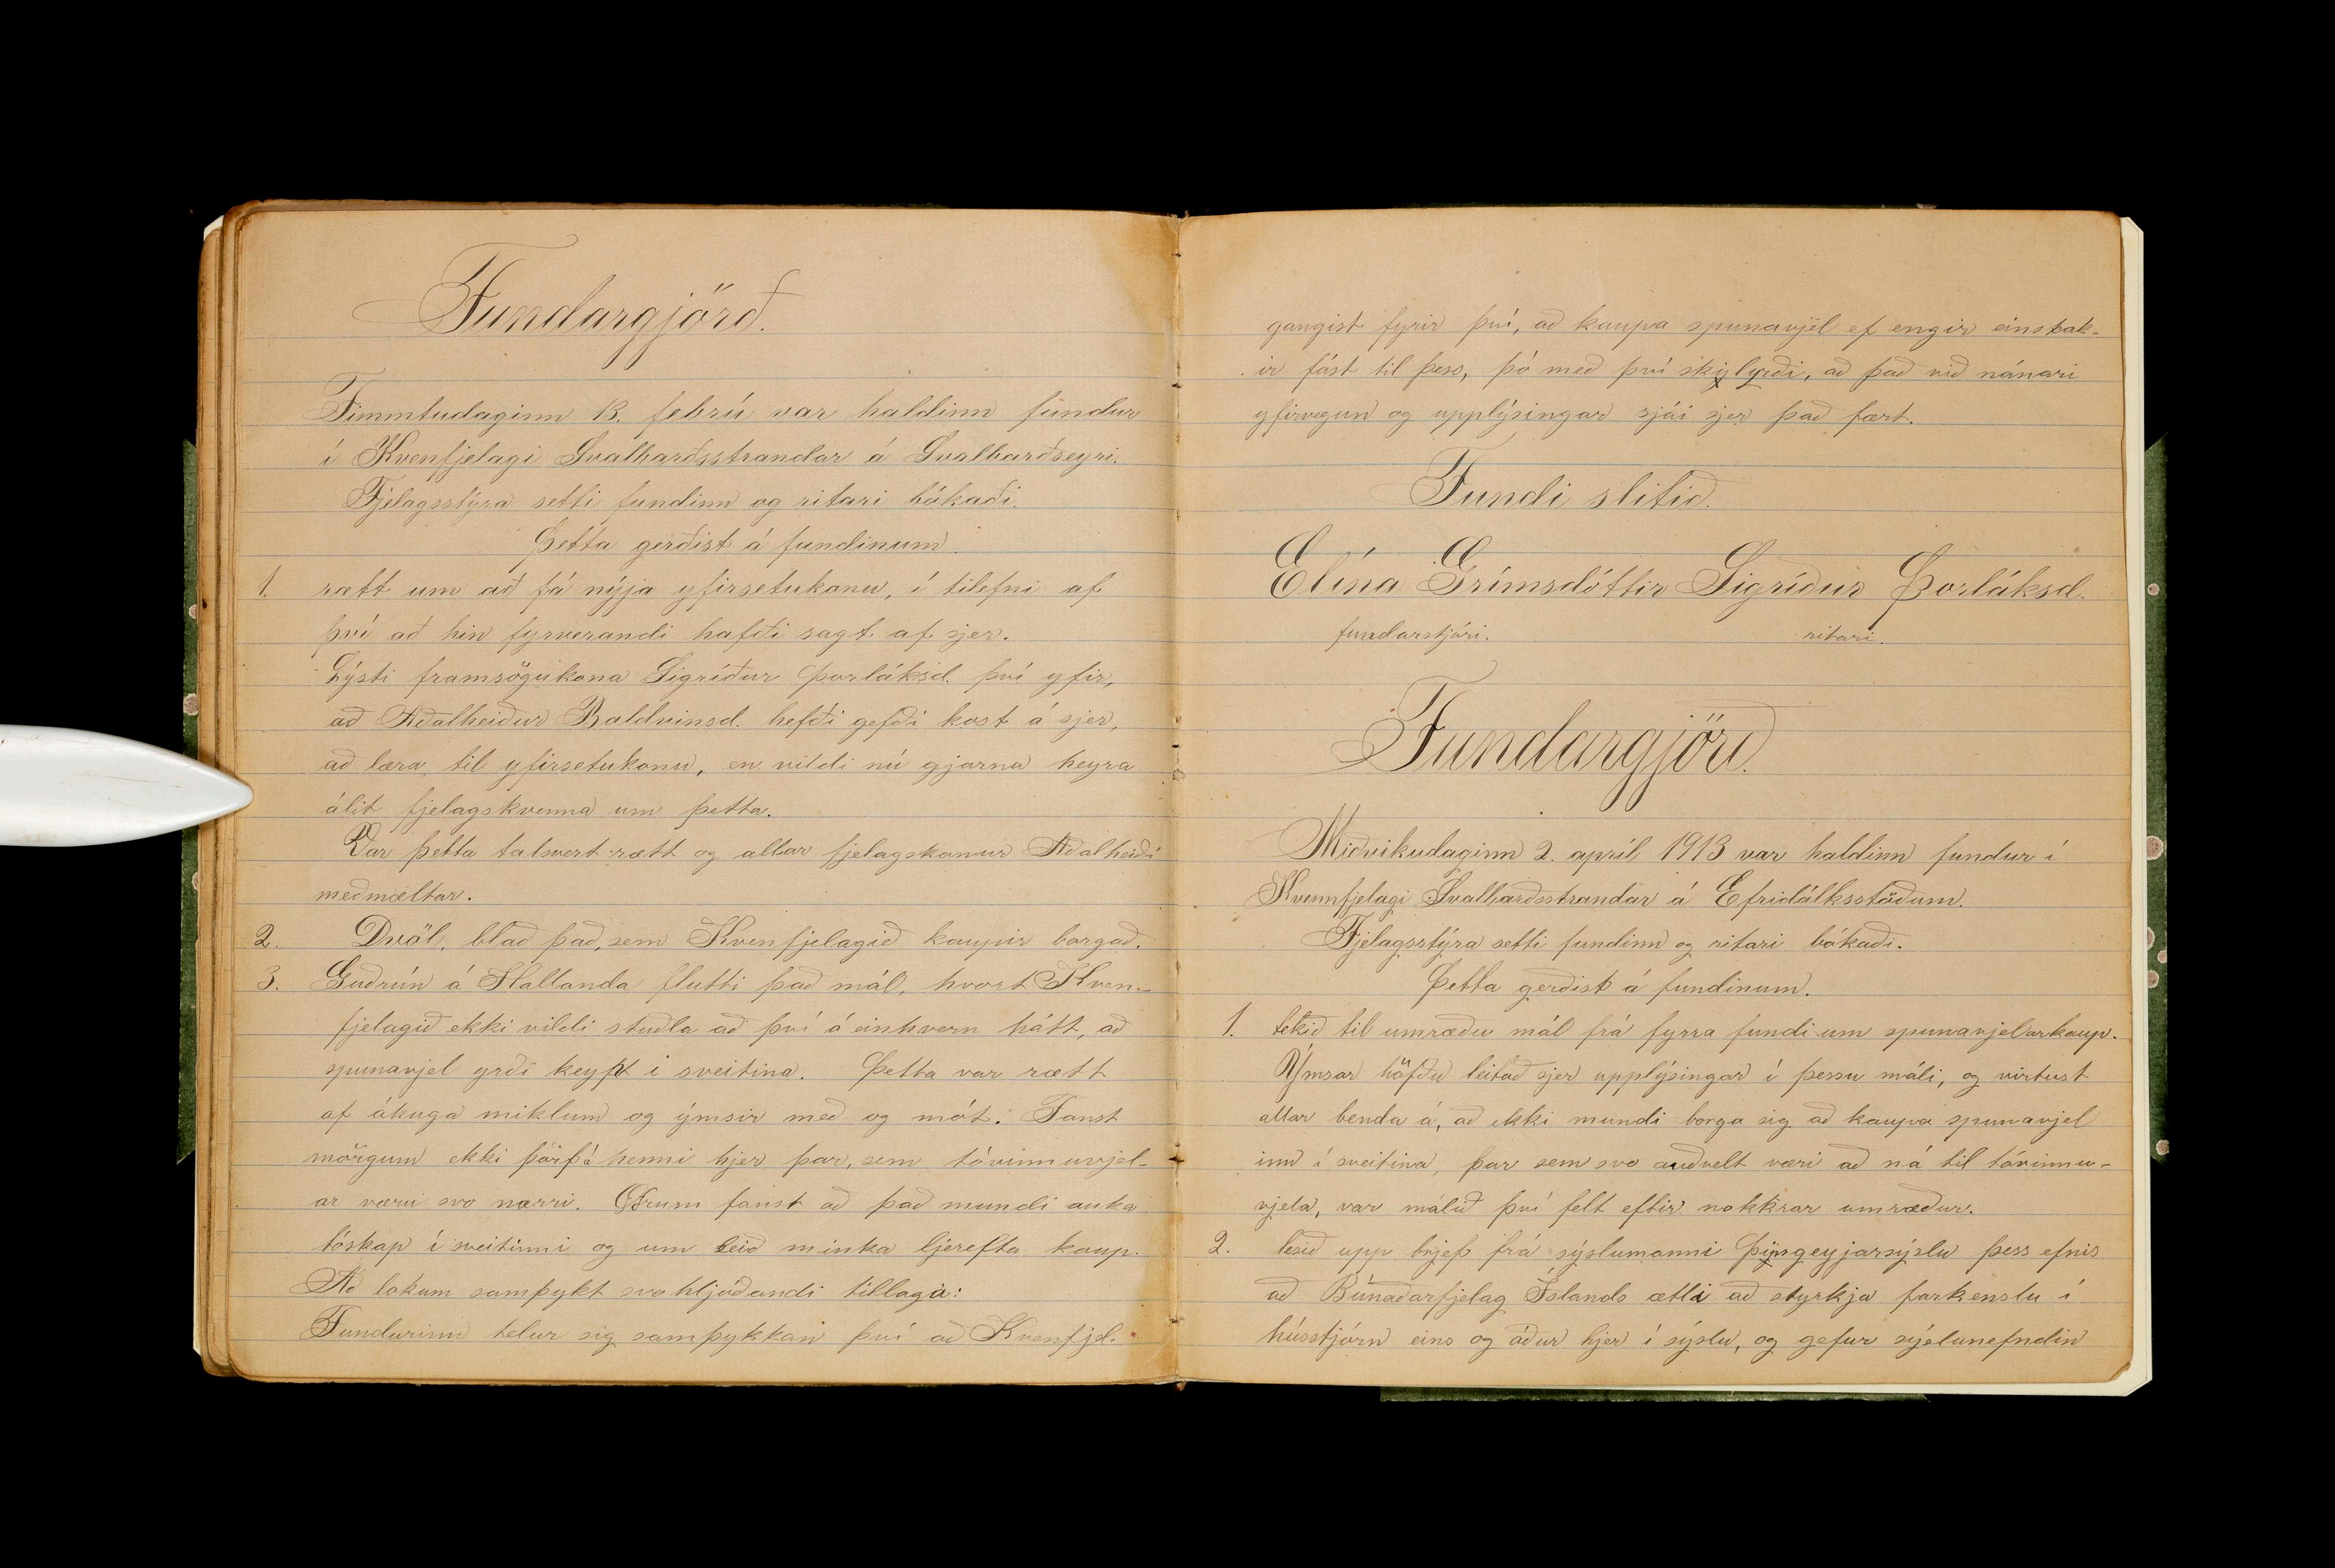 Fundargjörð.
Fimmtudaginn 13. febrú var haldinn fundur
í Kvenfjelagi Svalbarðsstrandar á Svalbarðseyri.
Fjelagsstýra setti fundinn og ritari bókaði.
Þetta gerðist á fundinum.
1. rætt um að fá nýja yfirsetukonu, í tilefni af
því að hin fyrverandi hafði sagt af sjer.
Lýsti framsögukona Sigríður Þorláksd. því yfir,
að Aðalheiður Baldvinsd. hefði gefði kost á sjer,
að læra til yfirsetukonu, en vildi nú gjarna heyra
álit fjelagskvenna um þetta.
Var þetta talsvert rætt og allar fjelagskonur Aðalheiði
meðmæltar.
2. Dvöl, blað það, sem Kvenfjelagið kaupir borgað.
3. Guðrún á Hallanda flutti það mál, hvort Kven-
fjelagið ekki vildi stuðla að því á einhvern hátt, að
spunavjel yrði keypt í sveitina. Þetta var rætt
af áhuga miklum og ýmsir með og mót. Fanst
mörgum ekki þörf á henni hjer þar, sem tóvinnuvjel-
ar væru svo nærri. Öðrum fanst að það mundi auka
tóskap í sveitinni og um leið minka ljerefta kaup.
Að lokum samþykt svohljóðandi tillaga:
Fundurinn telur sig samþykkan því að Kvenfjel.
gangist fyrir því, að kaupa spunavjel ef engir einstak-
ir fást til þess, þó með því skylyrði, að það við nánari
yfirvegun og upplýsingar sjái sjer það fært.
Fundi slitið.
Elína Grímsdóttir Sigríður Þorláksd.
fundarstjóri. ritari.
Fundargjörð.
Miðvikudaginn 2. apríl 1913 var haldinn fundur í
Kvennfjelagi Svalbarðsstrandar á Efridálksstöðum.
Fjelagsstýra setti fundinn og ritari bókaði.
Þetta gerðist á fundinum.
1. tekið til umræðu mál frá fyrra fundi um spunavjelarkaup.
Ýmsar höfðu leitað sjer upplýsingar í þessu máli, og virtust
allar benda á, að ekki mundi borga sig að kaupa spunavjel
inn í sveitina, þar sem svo auðvelt væri að ná til tóvinnu-
vjela, var málið því felt eftir nokkrar umræður.
2. lesið upp brjef frá sýslumanni Þingeyjarsýslu þess efnis
að Búnaðarfjelag Íslands ætli að styrkja farkenslu í
hússtjórn eins og áður hjer í sýslu, og gefur sýslunefndin